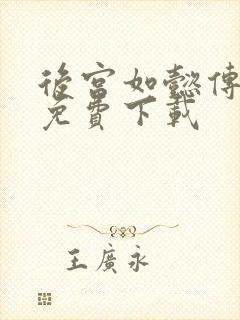 後宮如懿傳
免費下載
王廣永